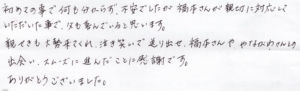 初めての事で何も分からず、不安でしたが 橋本さんが 親切に対応して
いただいた事で、父も喜んでいると思います。
親せきも大勢来てくれ、泣き笑いで送り出せ、橋本さんや やながわさんとの
出会い、スムーズに進んだことに感謝です。
ありがとうございました。